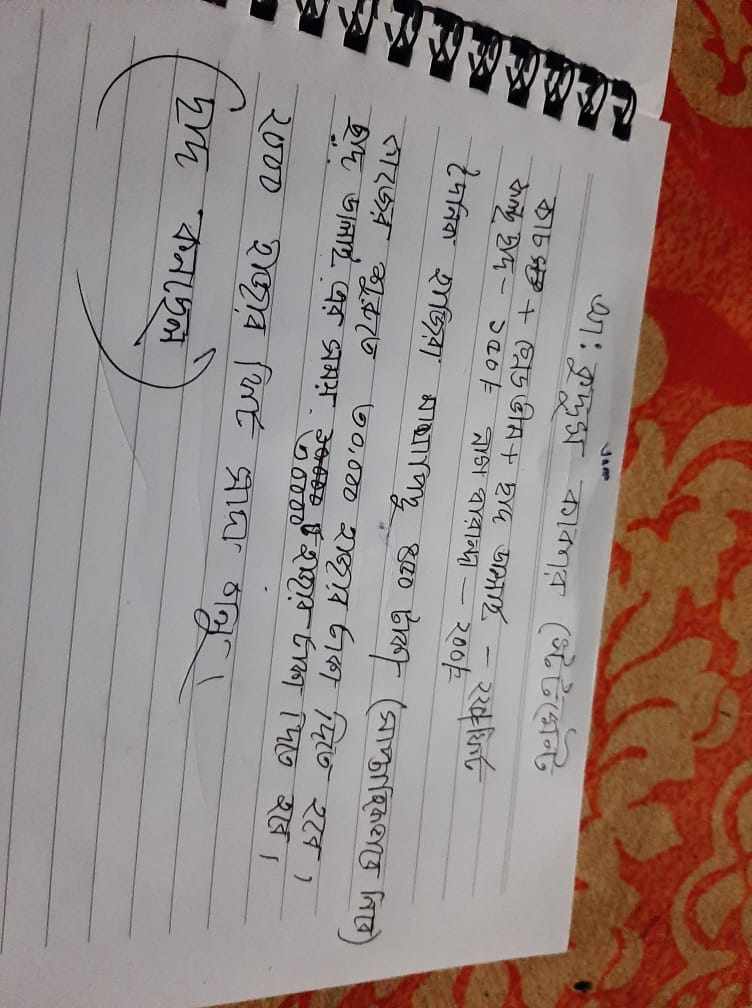 আ: কুদ্দুস কাকার স্টেটমেন্ট
কাচ + গ্রেডভীম + ছাদ ঢালাই – ২২৫ ফিট
ছাদ – ১৫০/= বারান্দা – ২০০/=
দৈনিক হাজিরা মাথাপিছু ৪৫০ টাকা (সাপ্তাহিকভাবে নিবে)
কাজের শুরুতে ৩০,০০০ হাজার টাকা দিতে হবে,
ছাদ ঢালাই এর সময় ৩০০০০ হাজার টাকা দিতে হবে।
২০০০ হাজার ফিট সাদা বালু।
(ছাদ কনছেল)